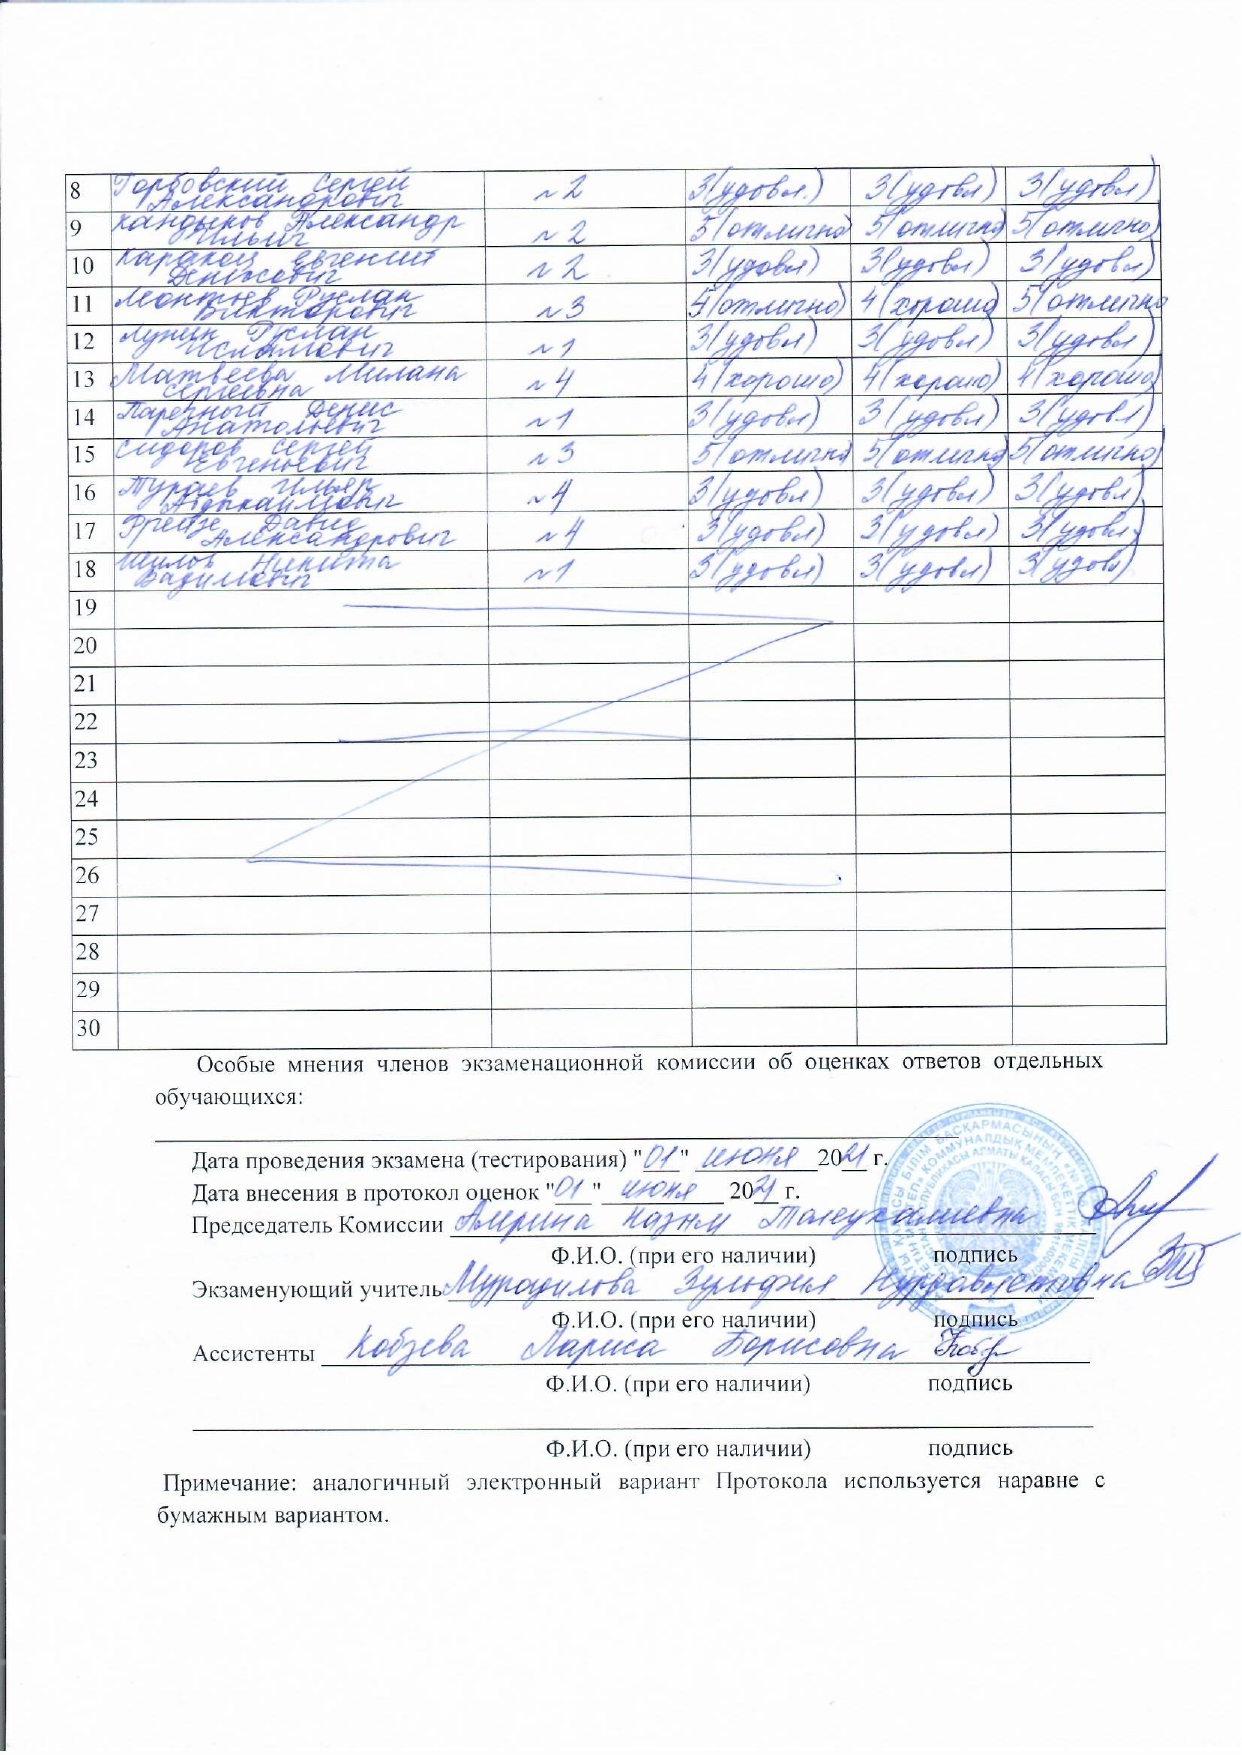 8 Горбовский Сергей Александрович №2 3(удовл.) 3(удовл) 3(удовл)
9 Кандыков Александр Ильич №2 5(отлично) 5(отлично) 5(отлично)
10 Евгений Денисович №2 3(удовл) 3(удовл) 3(удовл)
11 Леонтьев Руслан Викторович №3 (отлично) 4(хорошо) 5(отлично
12 Лунин Руслан Исламович №1 3(удовл) 3(удовл) 3(удовл)
13 Матвеева Милана Сергеевна №4 4(хорошо) 4(хорошо) 4(хорошо)
14 Денис Анатольевич №1 3(удовл) 3(удовл) 3(удовл)
15 Сидоров Сергей Евгеньевич №3 5(отлично) 5(отлично) 5(отлично)
16 Тураев №4 3(удовл) 3(удовл) 3(удовл)
17 Давид Александрович №4 3(удовл) 3(удовл) 3(удовл)
18 Шилов Никита Вадимович №1 3(удовл) 3(удовл) 3(удовл)
19
20
21
22
23
24
25
26
27
28
29
30
Особые мнения членов экзаменационной комиссии об оценках ответов отдельных
обучающихся:
Дата проведения экзамена (тестирования) "01" июня 2021 г.
Дата внесения в протокол оценок "01" июня 2021 г.
Председатель Комиссии Амрина Назым
Ф.И.О. (при его наличии) подпись
Экзаменующий учитель Мурадилова Зульфия
Ф.И.О. (при его наличии) подпись
Ассистенты Кобзева Лариса Борисовна
Ф.И.О. (при его наличии) подпись
Ф.И.О. (при его наличии) подпись
Примечание: аналогичный электронный вариант Протокола используется наравне с
бумажным вариантом.